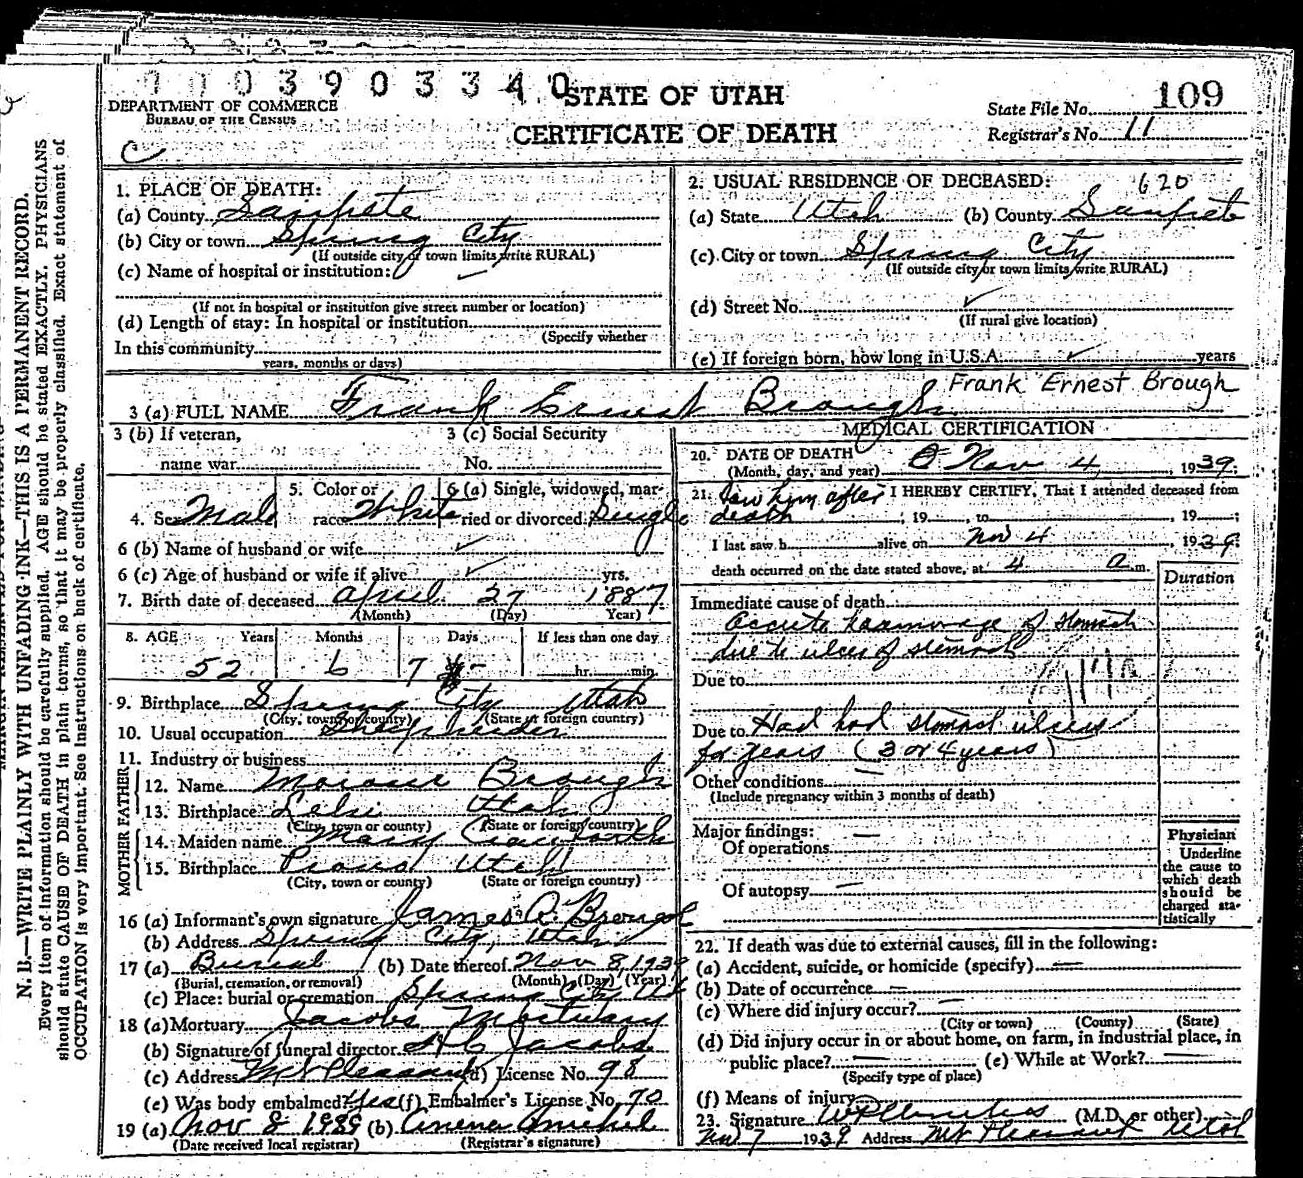 0003903340
STATE OF UTAH
CERTIFICATE OF DEATH
DEPARTMENT OF COMMERCE
BUREAU OF THE CENSUS
C
State File No. 109
Registrar's No. 11
N. B.—WRITE PLAINLY WITH UNFADING INK—THIS IS A PERMANENT RECORD.
Every item of information should be carefully supplied. AGE should be stated EXACTLY. PHYSICIANS
should state CAUSE OF DEATH in plain terms, so that it may be properly classified. Exact statement of
OCCUPATION is very important. See Instructions on back of certificate.
1. PLACE OF DEATH:
(a) County Sanpete
(b) City or town Spring City
(If outside city or town limits write RURAL)
(c) Name of hospital or institution:
(If not in hospital or institution give street number or location)
(d) Length of stay: In hospital or institution
(Specify whether
In this community
years, months or days)
2. USUAL RESIDENCE OF DECEASED: 620
(a) State Utah (b) County Sanpete
(c) City or town Spring City
(If outside city or town limits write RURAL)
(d) Street No.
(If rural give location)
(e) If foreign born, how long in U.S.A. years
3 (a) FULL NAME Frank Ernest Brough Frank Ernest Brough
3 (b) If veteran, 3 (c) Social Security
name war No.
4. Sex Male 5. Color or race White 6 (a) Single, widowed, married or divorced Single
6 (b) Name of husband or wife
6 (c) Age of husband or wife if alive yrs.
7. Birth date of deceased April 27 1887
(Month) (Day) Year)
8. AGE Years Months Days If less than one day
52 6 7 hr. min.
9. Birthplace Spring City Utah
(City, town or county) (State or foreign country)
10. Usual occupation Sheepherder
11. Industry or business
FATHER
12. Name Moroni Brough
13. Birthplace Lehi Utah
(City, town or county) (State or foreign country)
MOTHER
14. Maiden name Mary Crawforth
15. Birthplace Provo Utah
(City, town or county) (State or foreign country)
16 (a) Informant's own signature James R. Brough
(b) Address Spring City, Utah
17 (a) Burial (b) Date thereof Nov 8, 1939
(Burial, cremation, or removal) (Month) (Day) (Year)
(c) Place: burial or cremation Spring City Ut
18 (a) Mortuary Jacobs Mortuary
(b) Signature of funeral director H C Jacobs
(c) Address Mt Pleasant (d) License No. 98
(e) Was body embalmed? Yes (f) Embalmer's License No. 70
19 (a) Nov 8 1939 (b)
(Date received local registrar) (Registrar's signature)
MEDICAL CERTIFICATION
20. DATE OF DEATH
(Month, day, and year) Nov 4, 1939;
21. Saw him after death I HEREBY CERTIFY, That I attended deceased from
, 19 , to , 19 ;
I last saw h alive on Nov 4 1939;
death occurred on the date stated above, at 4 a m.
Duration
Immediate cause of death
Accute haemorage of stomach
due to ulcer of stomach
Due to
117a
Due to Had had stomach ulcers
for years (3 or 4 years)
Other conditions
(Include pregnancy within 3 months of death)
Major findings:
Of operations
Of autopsy
Physician
Underline
the cause to
which death
should be
charged sta-
tistically
22. If death was due to external causes, fill in the following:
(a) Accident, suicide, or homicide (specify)
(b) Date of occurrence
(c) Where did injury occur?
(City or town) (County) (State)
(d) Did injury occur in or about home, on farm, in industrial place, in
public place? (e) While at Work?
(Specify type of place)
(f) Means of injury
23. Signature (M.D. or other)
Nov 7 1939 Address Mt Pleasant Utah